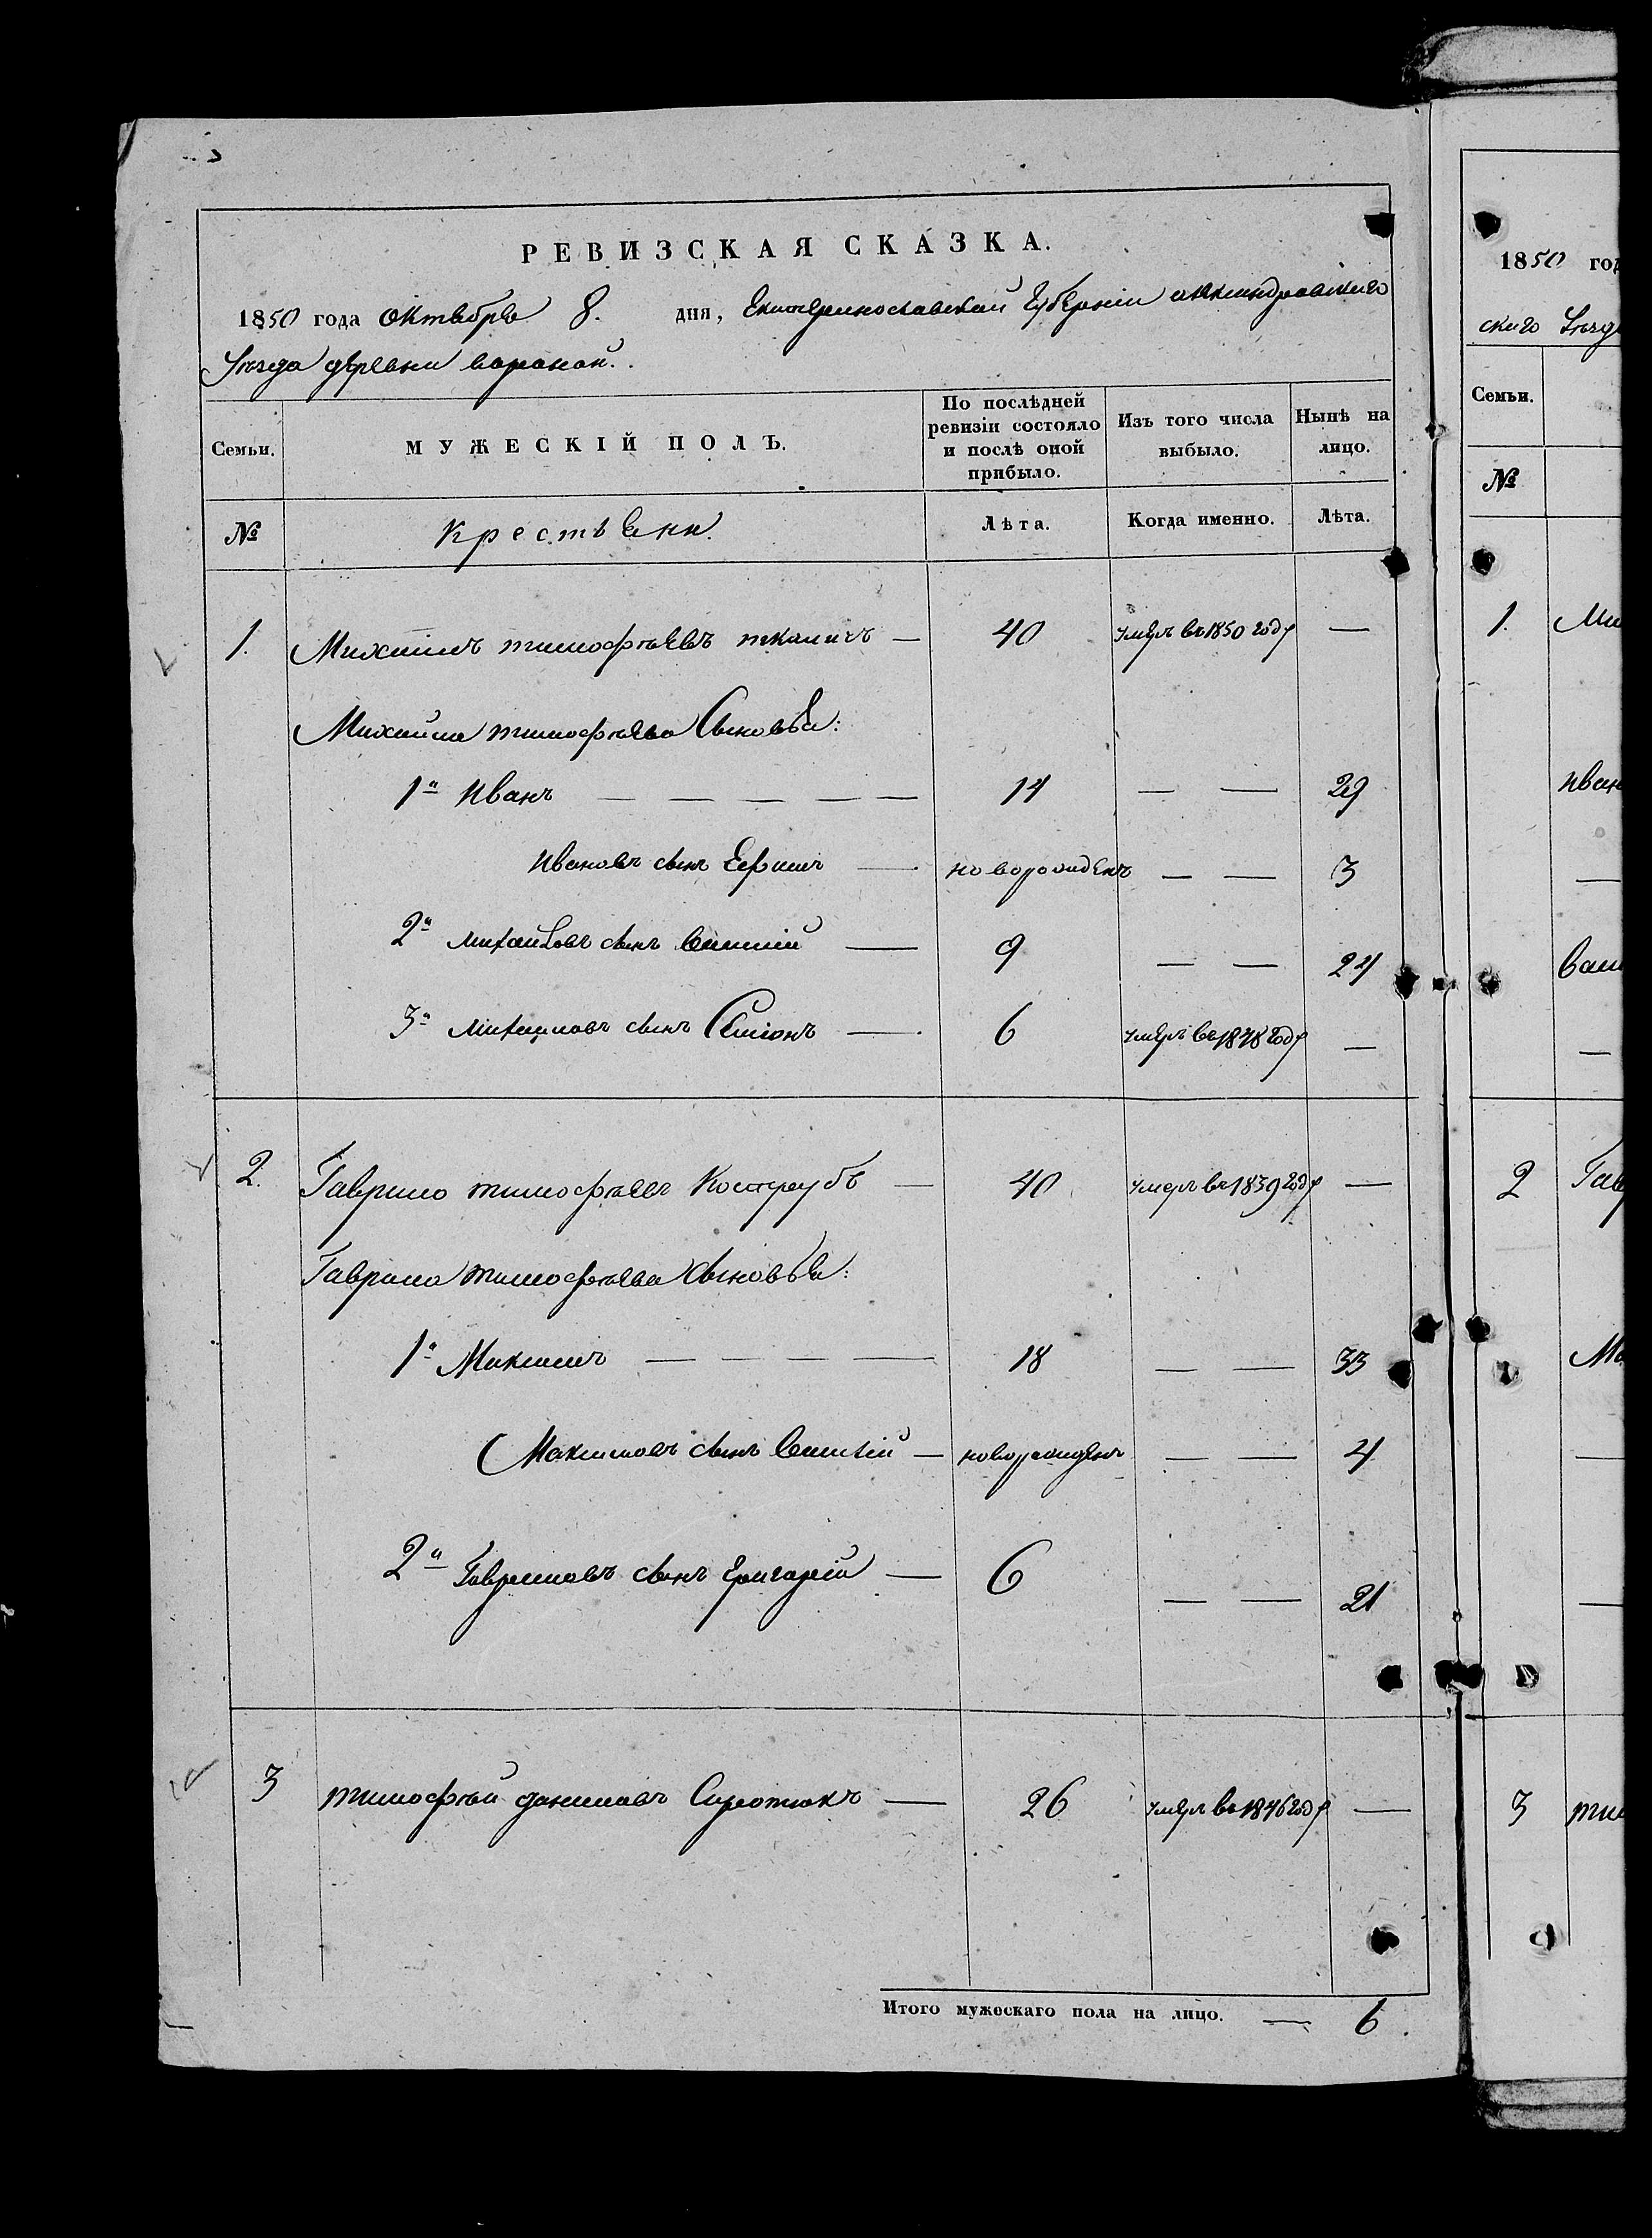 РЕВИЗСКАЯ СКАЗКА.
1850 года Октября 8. дня, Екатеринославской Губерніи александровскаго
Уезда деревни вороной.
Семьи. МУЖЕСКІЙ ПОЛЪ. По послѣдней ревизіи состояло и послѣ оной прибыло. Изъ того числа выбыло. Нынѣ на лицо.
№ Крестьяне. Лѣта. Когда именно. Лѣта.
1. Михаилъ тимофѣевъ ткаличъ — 40 умеръ въ 1850 году —
Михайла тимофѣева Сыновья:
1й Иванъ — — — — — 14 — — 29
Ивановъ сынъ Ефимъ — новорожденъ — — 3
2й михайловъ сынъ василій — 9 — — 24
3й михайловъ сынъ Семіонъ — 6 умеръ въ 1848 году —
2. Гаврило тимофѣевъ Кострубъ — 40 умеръ въ 1839 году —
Гаврила тимофѣева Сыновья:
1й Максимъ — — — — 18 — — 33
Максимовъ сынъ василій — новорожденъ — — 4
2й Гавриловъ сынъ григорій — 6 — — 21
3 тимофѣй даниловъ Сиротюкъ — 26 умеръ въ 1846 году —
Итого мужескаго пола на лицо. — 6.
1850 год
скаго Уезд
Семьи.
№
1. Ми
Иван
Васи
2 Гав
Ма
3 тим